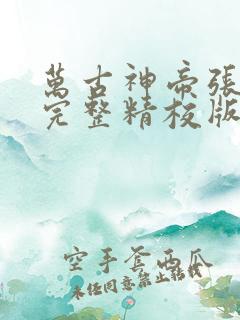 萬古神帝張
完整精校版
空手套西瓜
未经同意禁止转载